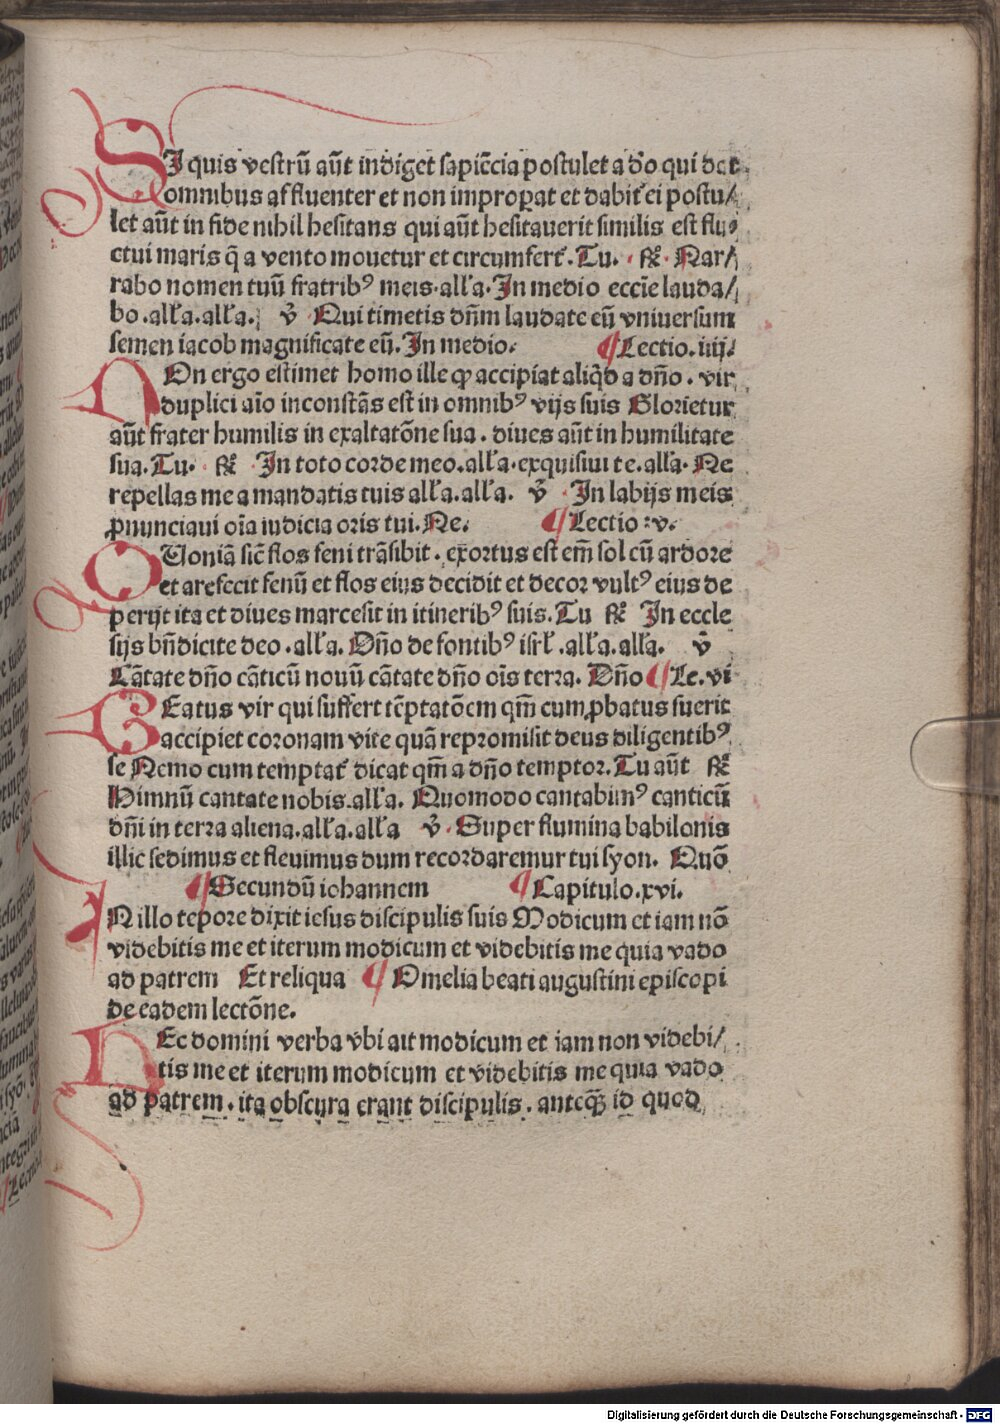 SI quis vestrū aūt indiget sapiēcia postulet a dō qui dat
omnibus affluenter et non improꝑat et dabit̄ ei postu/
let aūt in fide nihil hesitans qui aūt hesitauerit similis est flu⸗
ctui maris q̄ a vento mouetur et circumfert̄. Tu. ℟. Nar/
rabo nomen tuū fratribꝰ meis. all'a. In medio eccīe lauda/
bo. all'a. all'a. ℣ Qui timetis dn̄m laudate eū vniuersum
semen iacob magnificate eū. In medio. ¶ Lectio. iiij.
NOn ergo estimet homo ille ꝙ accipiat aliq̄d a dn̄o. vir
duplici aīo inconstās est in omnibꝰ vijs suis Glorietur
aūt frater humilis in exaltatōne sua. diues aūt in humilitate
sua. Tu. ℟ In toto corde meo. all'a. exquisiui te. all'a. Ne
repellas me a mandatis tuis all'a. all'a. ℣ In labijs meis
ꝓnunciaui oīa iudicia oris tui. Ne. ¶ Lectio. v.
QUoniā sic̄ flos feni trāsibit. exortus est em̄ sol cū ardore
et arefecit fenū et flos eius decidit et decor vultꝰ eius de
perijt ita et diues marcesit in itineribꝰ suis. Tu ℟ In eccle
sijs bn̄dicite deo. all'a. Dn̄o de fontibꝰ isrl'. all'a. all'a. ℣
Cātate dn̄o cāticū nouū cātate dn̄o oīs terra. Dn̄o ¶ Le. vi
BEatus vir qui suffert tēptatōem qm̄ cum ꝓbatus fuerit
accipiet coronam vite quā repromisit deus diligentibꝰ
se Nemo cum temptat̄ dicat qm̄ a dn̄o temptor. Tu aūt ℟
Himnū cantate nobis. all'a. Quomodo cantabimꝰ canticū
dn̄i in terra aliena. all'a. all'a ℣ Super flumina babilonis
illic sedimus et fleuimus dum recordaremur tui syon. Quō
¶ Secundū iohannem ¶ Capitulo. xvi.
IN illo tepore dixit iesus discipulis suis Modicum et iam nō
videbitis me et iterum modicum et videbitis me quia vado
ad patrem Et reliqua ¶ Omelia beati augustini episcopi
de eadem lectōne.
HEc domini verba vbi ait modicum et iam non videbi/
tis me et iterum modicum et videbitis me quia vado
ad patrem. ita obscura erant discipulis. anteq̄ꝫ id quod
Digitalisierung gefördert durch die Deutsche Forschungsgemeinschaft - DFG